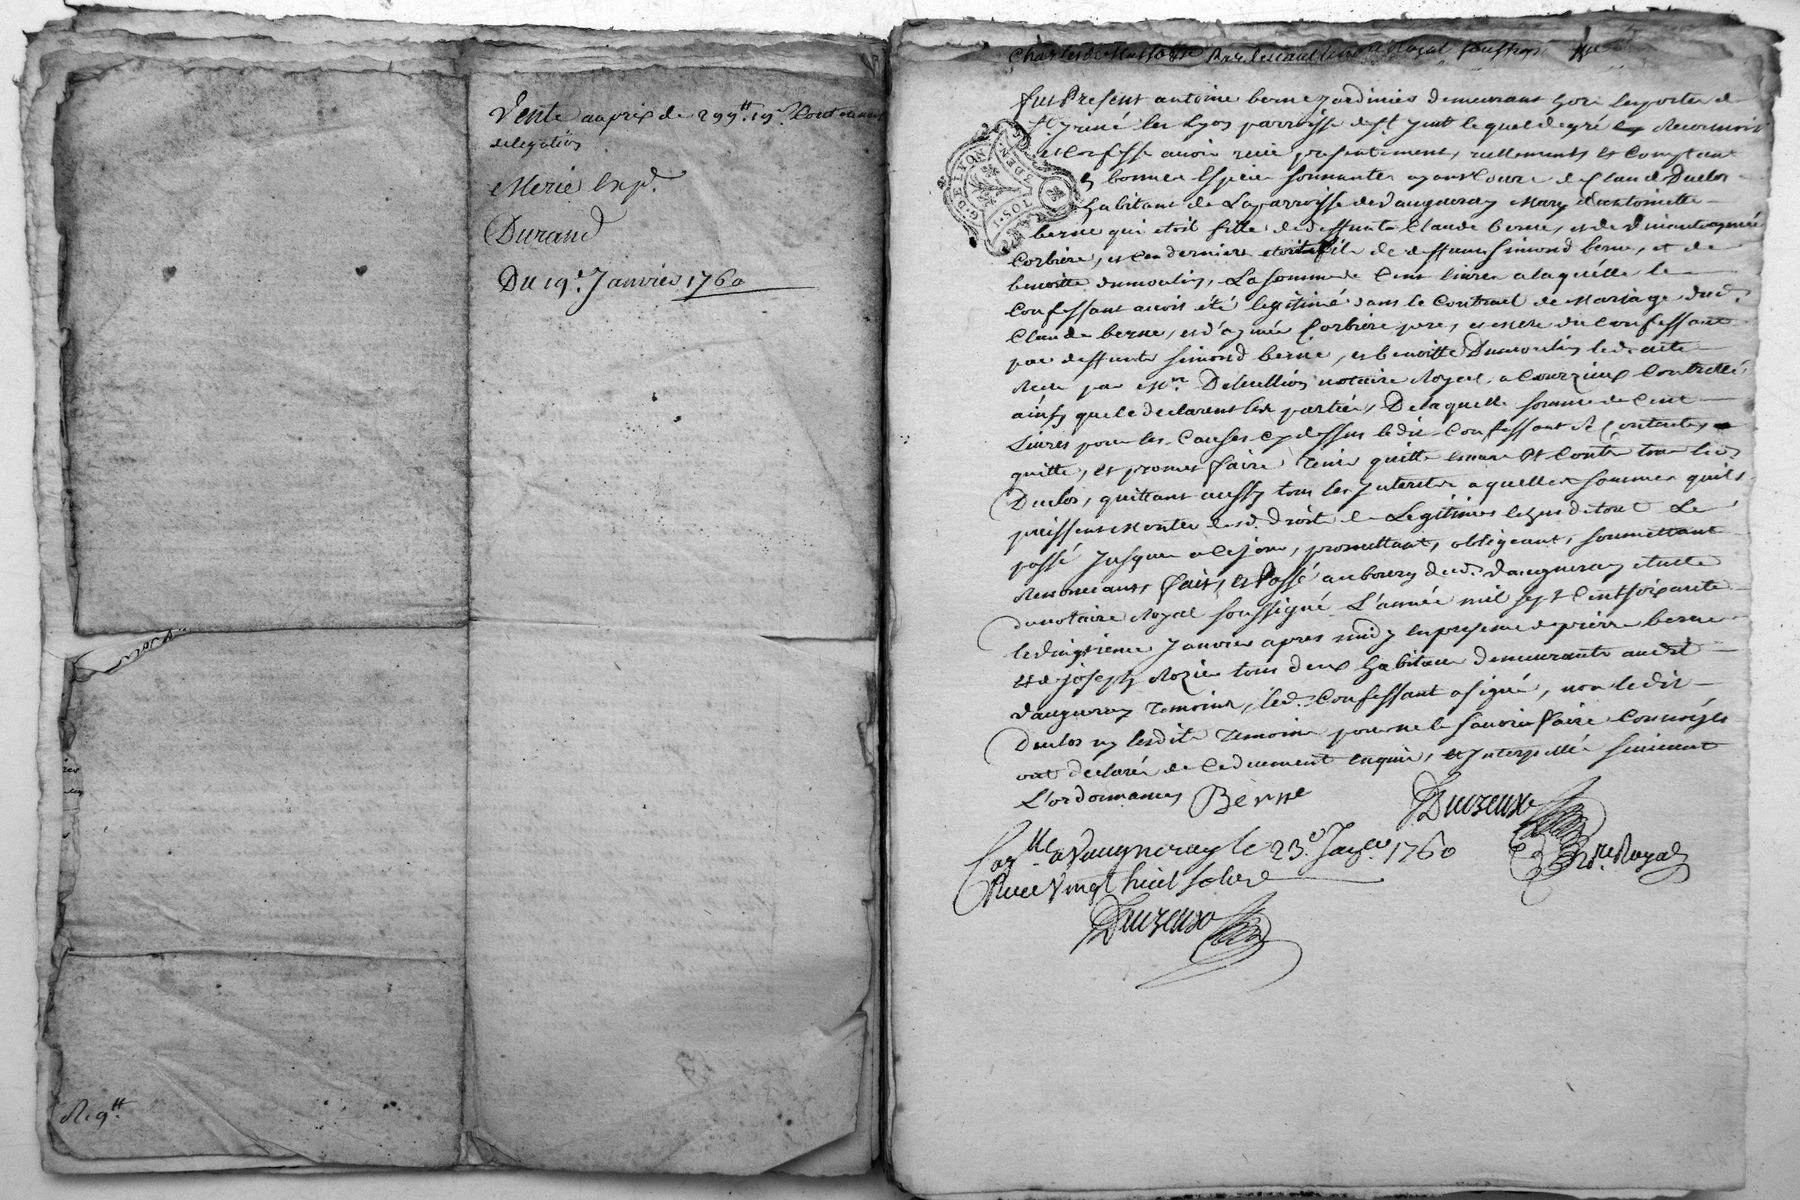 Vente au prix de 299ᵗᵗ 19ˢ
delegation
Merie exp.
Durand
Du 19e Janvier 1760
Reg tt
Fut Present antoine berne jardinier demeurant hors les portes de
St Yrine les Lyon parroisse de St Just lequel de gré Reconnoit
et Confesse avoir reçu presentement, reellement et Comptant
en bonnes Especes sonnantes ayant Cours de Claude Duclos
habitant de La parroisse de Vaugneray Mary d'antoinette
berne qui etoit fille de deffunt Claude berne, et de
Corbiere, et Ce dernier etoit fils de deffunt Simond berne, et de
benoitte dumoulin, La somme de Cent livres a laquelle le
Confessant avoit été legitimé dans le Contract de Mariage dud.
Claude berne, et d'aymée Corbiere pere, et mere du Confessant
par deffunts Simond berne, et benoitte Dumoulin led. acte
Reçu par Me notaire Royal a Courzieux Controllé
ainsy que le declarent les parties, De laquelle somme de Cent
Livres pour les Causes cy dessus ledit Confessant se Contente
quitte, et promet faire tenir quitte envers et Contre tous led.
Duclos, quittant aussy tous les Interets a quelles sommes quils
puissent monter lesd. droits de Legitimes le tout de tout Le
passé Jusques a Ce jour, promettant, obligeant, soumettant
Renonceant, fait, et Passé au bourg dud. Vaugneray etude
du notaire Royal soussigné L'année mil sept Cent soixante
le vingtieme Janvier apres midy En presence de pierre berne
et de joseph Rozier tous deux habitans demeurants audit
Vaugneray temoins, led. Confessant a signé, non ledit
Duclos ny lesdits temoins pour ne le savoir faire Comme ils
ont declaré de Ce duement enquis, et Interpellé suivant
L'ordonnance Berne
Duizeux
Nre Royal
Con.lle a Vaugneray le 23e Janer 1760
Reçu Vingt huit sols
Duizeux